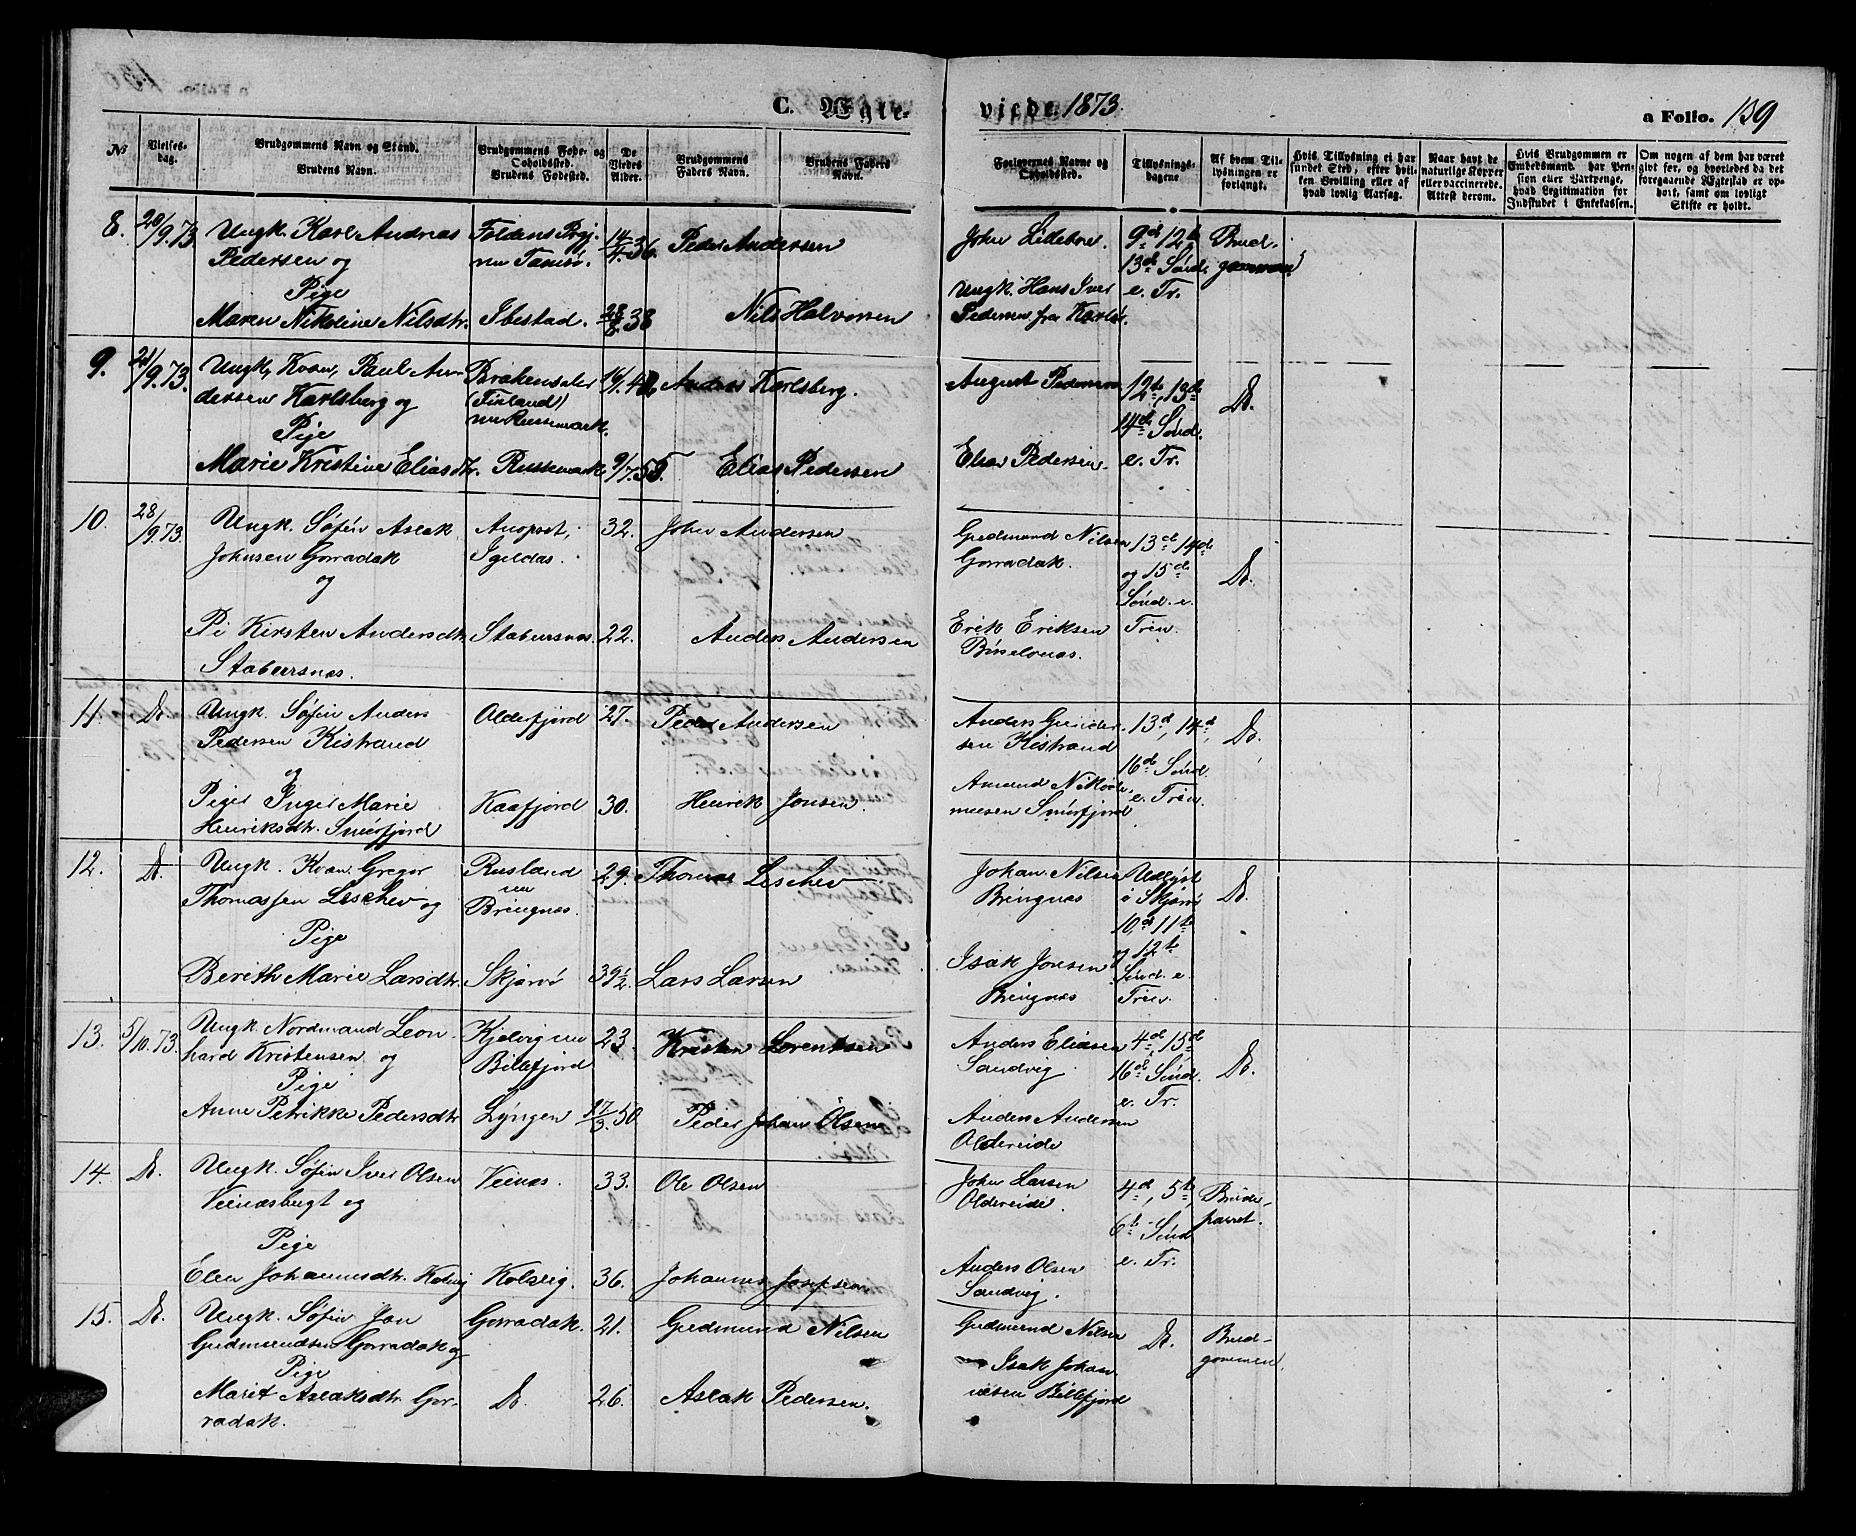 C. Ægte-
viede. 1873.
a Folio. 159
№
Vielses-
dag.
Brudgommens Navn og Stand.
Brudens Navn.
Brudgommens Føde- og
Opholdssted.
Brudens Fødested.
De
Viedes
Alder.
Brudgommens
Faders Navn.
Brudens Faders
Navn.
Forlovernes Navne og
Opholdssted.
Tillysnings-
dagene
Af hvem Til-
lysningen er
forlangt.
Hvis Tillysning ei har
fundet Sted, efter hvil-
ken Bevilling eller af
hvad lovlig Aarsag.
Naar havt de
naturlige Kopper
eller vaccinerede.
Attest derom.
Hvis Brudgommen er
Embedsmand, har Pen-
sion eller Vartpenge,
hvad Legitimation for
Indskudet i Enkekassen.
Om nogen af dem har været
gift før, og hvorledes da det
foregaaende Ægteskab er op-
hørt, samt om lovligt
Skifte er holdt.
8. 20/9.73 Ungk. Karl Andreas Foldens Prgj. 14/4 36. Peder Andersen John Lillebre. 9d 12te Brud-
Pedersen og nu Tamsø. 13de Sönd. gommen
Pige Ungk. Hans Iver e. Tr.
Maren Nikoline Nilsdtr. Ibestad. 38 Nils Halvorsen Pedersen fra Karlsö.
9. 21/9.73. Ungk, Kvæn, Paul An- 16/1.42 Anders Karlsberg. August Pedersen 12te, 13de Do.
dersen Karlsberg og (Finland)
Pige nu Russemark. 14de Sönd.
Marie Kristine Eliasdtr. Russemark 9/7.55. Elias Pedersen Elias Pedersen. e. Tr.
10. 28/9.73. Ungk. Søfin Aslak Anopset, 32. John Andersen Gudmund Nilsen 13de 14de Do.
Johnsen Gorradak Igeldas. Gorradak. og 15de
og Sönd. e.
Pi Kirsten Andersdtr. Stabursnæs. 22. Anders Andersen Erik Eriksen Trin.
Stabursnæs. Börselvnæs.
11. Do. Ungk. Søfin Anders Olderfjord 27. Peder Andersen Anders Gunder- 13d, 14d, Do.
Pedersen Kistrand sen Kistrand
og 16de Sönd.
Pige Inger Marie Kaafjord 30. Henrik Jonsen. Amund Nikode- e. Trin.
Henriksdtr. Smörfjord musen Smörfjord
12. Do. Ungk. Kvæn, Gregor Rusland 29. Thomas Leschev Johan Nilsen Udlyst Do.
Thomassen Leschev og nu Bringnæs. Bringnæs i Skjærvö
Pige 10de 11te
og 12te
Berith Marie Larsdtr. Skjærvö 39½ Lars Larsen Isak Jonsen Sönd. e.
Bringnæs Trin.
13. 5/10.73. Ungk. Nordmand Leon- Kjelvig nu 23. Kristen Lorentsen Anders Eliasen 4de, 15de Do.
hard Kristensen og Billefjord Sandvig. 16de Sönd.
Pige e. Tr.
Anne Petrikke Pedersdtr. Lyngen 27/3.50 Peder Johan Olsen Anders Andersen
Oldereide
14. Do. Ungk. Søfin Iver Olsen Veinæs. 33. Ole Olsen John Larsen 4de, 5te, Brude-
Veinæsbugt og Oldereide. 6te Sönd parret.
Pige e. Tr.
Elen Johannesdtr. Kolvig Kolvig. 36. Johannes Josefsen Anders Olsen
Sandvig.
15. Do. Ungk. Søfin Jon Gorradak. 21. Gudmund Nilsen Gudmund Nilsen Do. Brud-
Gudmundsen Gorradak og gommen.
Pige Isak Johan-
Marit Aslaksdtr. Gor- Do. 26. Aslak Pedersen. nesen Billefjord
radak.